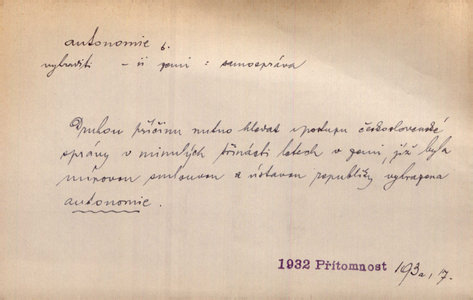 autonomie 6.
vyhraditi – si zemi : samospráva
Druhou příčinu nutno hledat v postupu československé
správy v minulých třinácti letech v zemi, jíž byla
mírovou smlouvou a ústavou republiky vyhrazena
autonomie.
1932 Přítomnost 193a, 17.